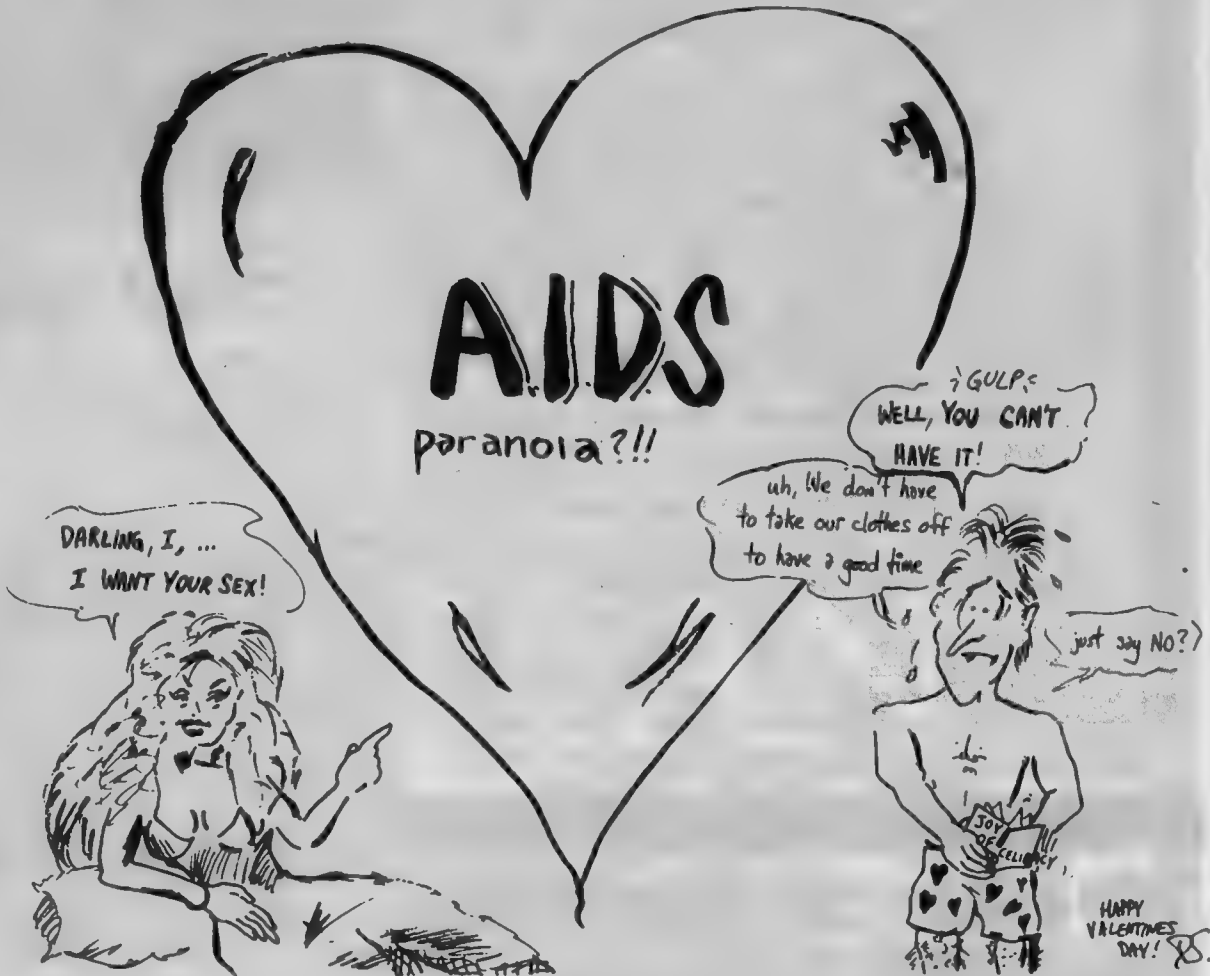 A.I.D.S
paranoia?!!
DARLING, I, ...
I WANT YOUR SEX!
GULP
WELL, YOU CAN'T
HAVE IT!
uh, We don't have
to take our clothes off
to have a good time
just say NO?
JOY
OF
CELIBACY
HAPPY
VALENTINES
DAY!